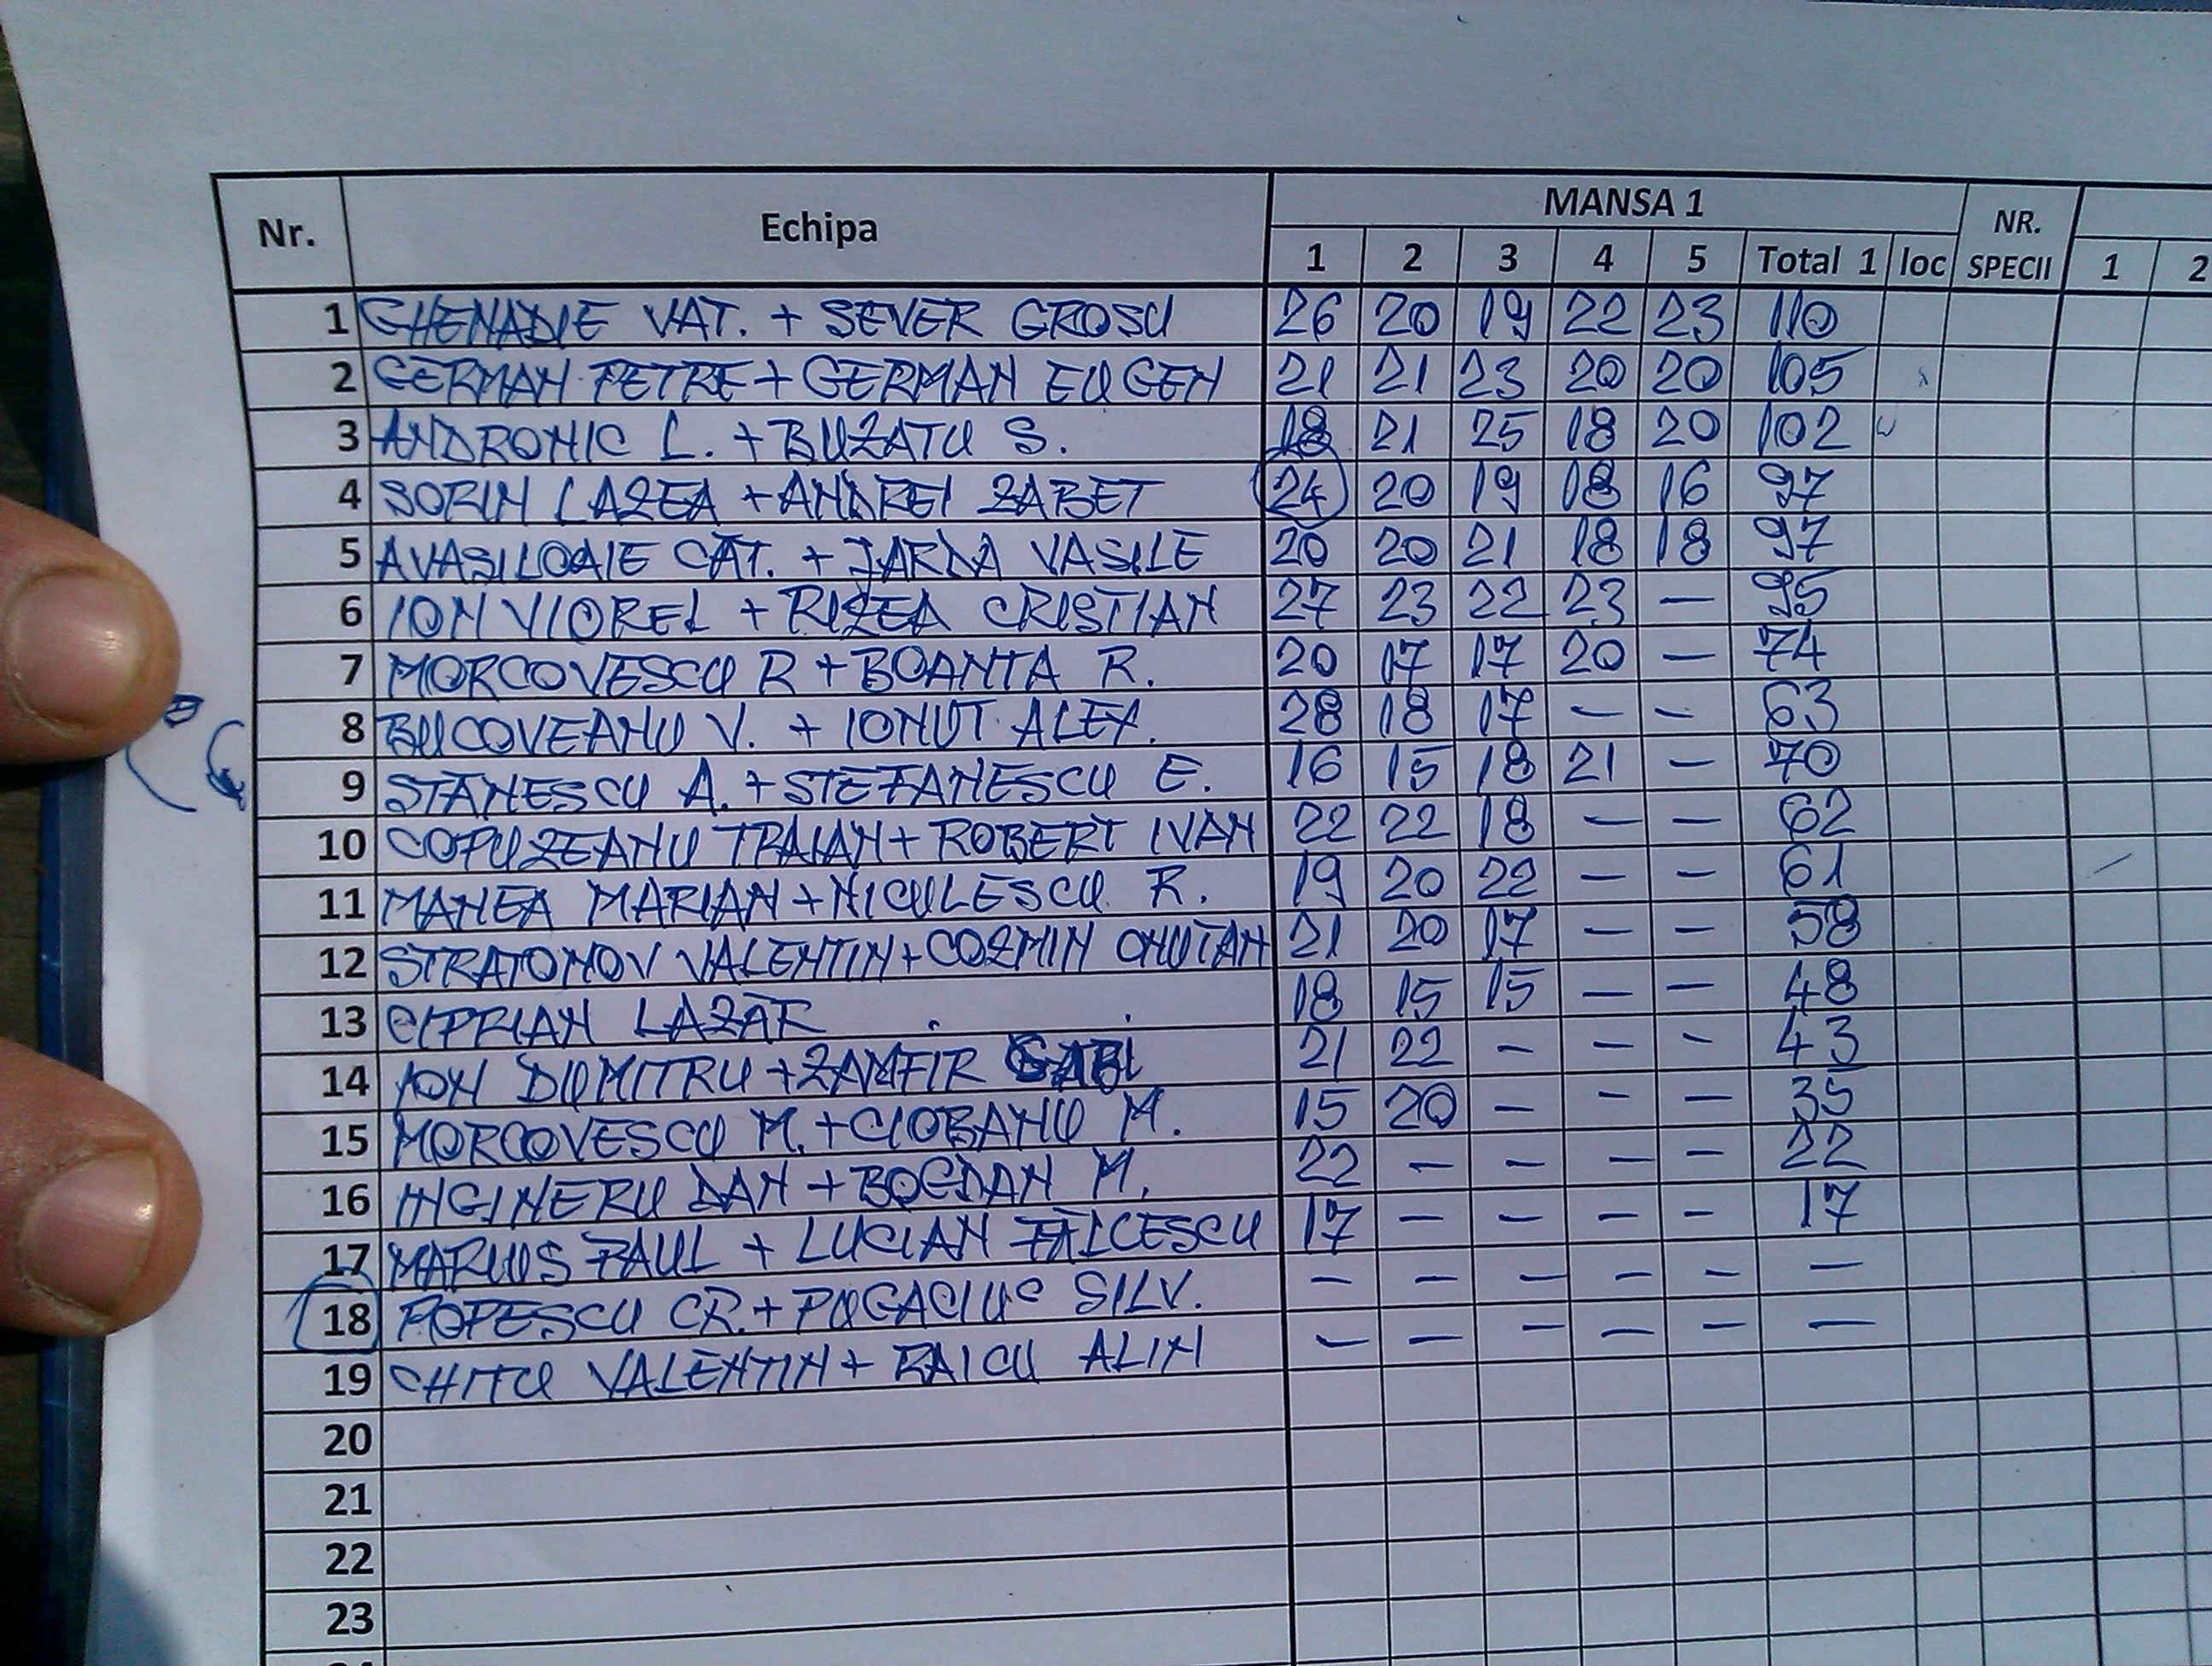 MANSA 1
Nr. Echipa 1 2 3 4 5 Total 1 loc NR. SPECII 1 2
1 GHENADIE VAT. + SEVER GROSU 26 20 19 22 23 110
2 GERMAN PETRE + GERMAN EUGEN 21 21 23 20 20 105
3 ANDRONIC L. + BUZATU S. 18 21 25 18 20 102
4 SORIN LAZEA + ANDREI ZABET 24 20 19 18 16 97
5 AVASILOAIE CAT. + IARDA VASILE 20 20 21 18 18 97
6 ION VIOREL + RIZEA CRISTIAN 27 23 22 23 — 95
7 MORCOVESCU R + BOANTA R. 20 17 17 20 — 74
8 BUCOVEANU V. + IONUT ALEX. 28 18 17 — — 63
9 STANESCU A. + STEFANESCU E. 16 15 18 21 — 70
10 COPUZEANU TRAIAN + ROBERT IVAN 22 22 18 — — 62
11 MANEA MARIAN + NICULESCU R. 19 20 22 — — 61
12 STRATONOV VALENTIN + COZMIN ONUTAN 21 20 17 — — 58
13 CIPRIAN LAZAR 18 15 15 — — 48
14 ION DUMITRU + ZAMFIR GABI 21 22 — — — 43
15 MORCOVESCU M. + CIOBANU M. 15 20 — — — 35
16 INGINERU DAN + BOGDAN M. 22 — — — — 22
17 MARIUS PAUL + LUCIAN FALCESCU 17 — — — — 17
18 POPESCU CR. + PUGACIUC SILV. — — — — — —
19 CHITU VALENTIN + RAICU ALIN — — — — — —
20
21
22
23